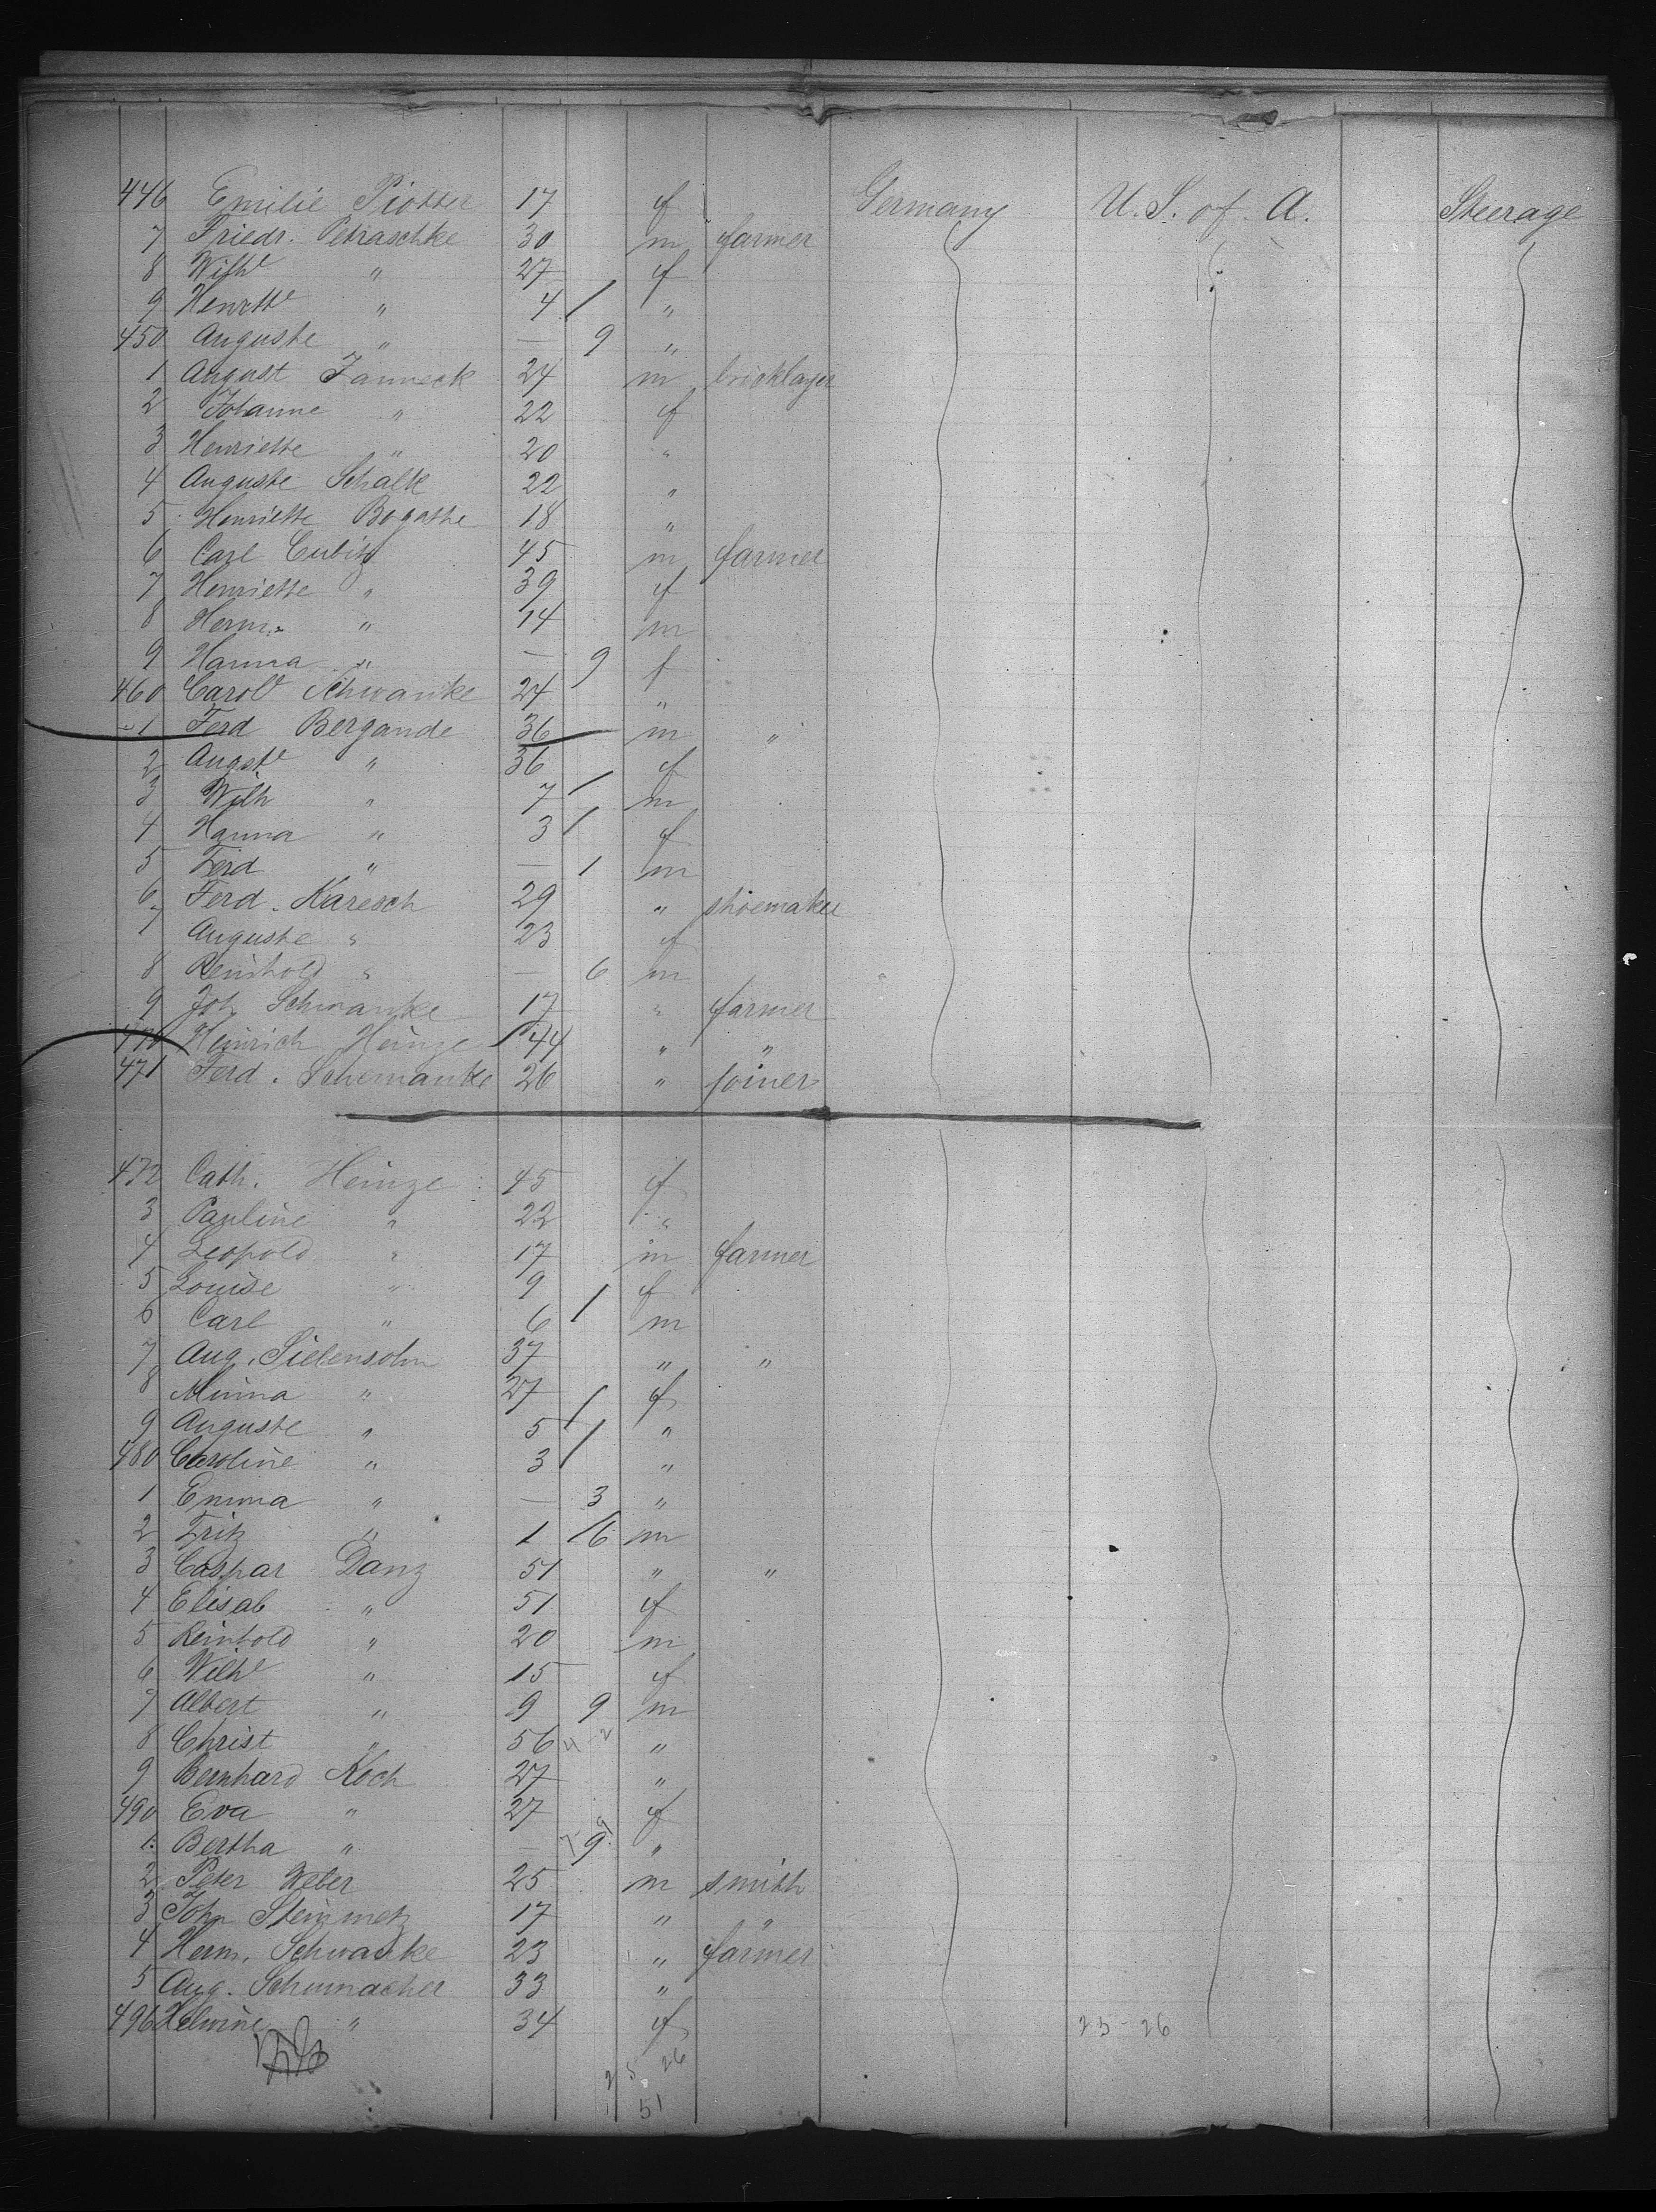 446 Emilie Piotter 17 f Germany U. S. of A. Steerage
7 Friedr. Petraschke 30 m farmer
8 Wilhe " 27 f
9 Henrtte " 4 / "
450 Auguste " — 9 "
1 August Janneck 24 m bricklayer
2 Johanne " 22 f
3 Henriette " 20 "
4 Auguste Schalk 22 "
5 Henriette Bogathe 18 "
6 Carl Cubitz 45 m farmer
7 Henriette " 39 f
8 Herm. " 14 m
9 Hanna " — 9 f
460 Carole Schwanke 24 "
1 Ferd Bergande 36 m "
2 Augste " 36 f
3 Wilh " 7 / m
4 Hanna " 3 / f
5 Ferd " — 1 m
6 Ferd. Karesch 29 " shoemaker
7 Auguste " 23 f
8 Reinhold " — 6 m
9 Joh Schwanke 17 " farmer
470 Heinrich Heinze 44 " "
471 Ferd. Schemanke 26 " joiner
472 Cath. Heinze 45 f
3 Pauline " 22 "
4 Leopold " 17 m farmer
5 Louise " 9 f
6 Carl " 6 / m
7 Aug. Siebensohn 37 " "
8 Minna " 27 f
9 Auguste " 5 / "
480 Caroline " 3 / "
1 Emma " — 3 "
2 Fritz " 1 6 m
3 Caspar Danz 51 " "
4 Elisab " 51 f
5 Reinhold " 20 m
6 Wilhe " 15 f
7 Albert " 9 9 m
8 Christ " 56 4-2 "
9 Bernhard Koch 27 "
490 Eva " 27 f
1. Bertha " — 9 "
2 Peter Weber 25 m smith
3 Joh Steinmetz 17 " "
4 Herm. Schwanke 23 " farmer
5 Aug. Schumacher 33 "
496 Helmine " 34 f
25-26
2 5 26
51